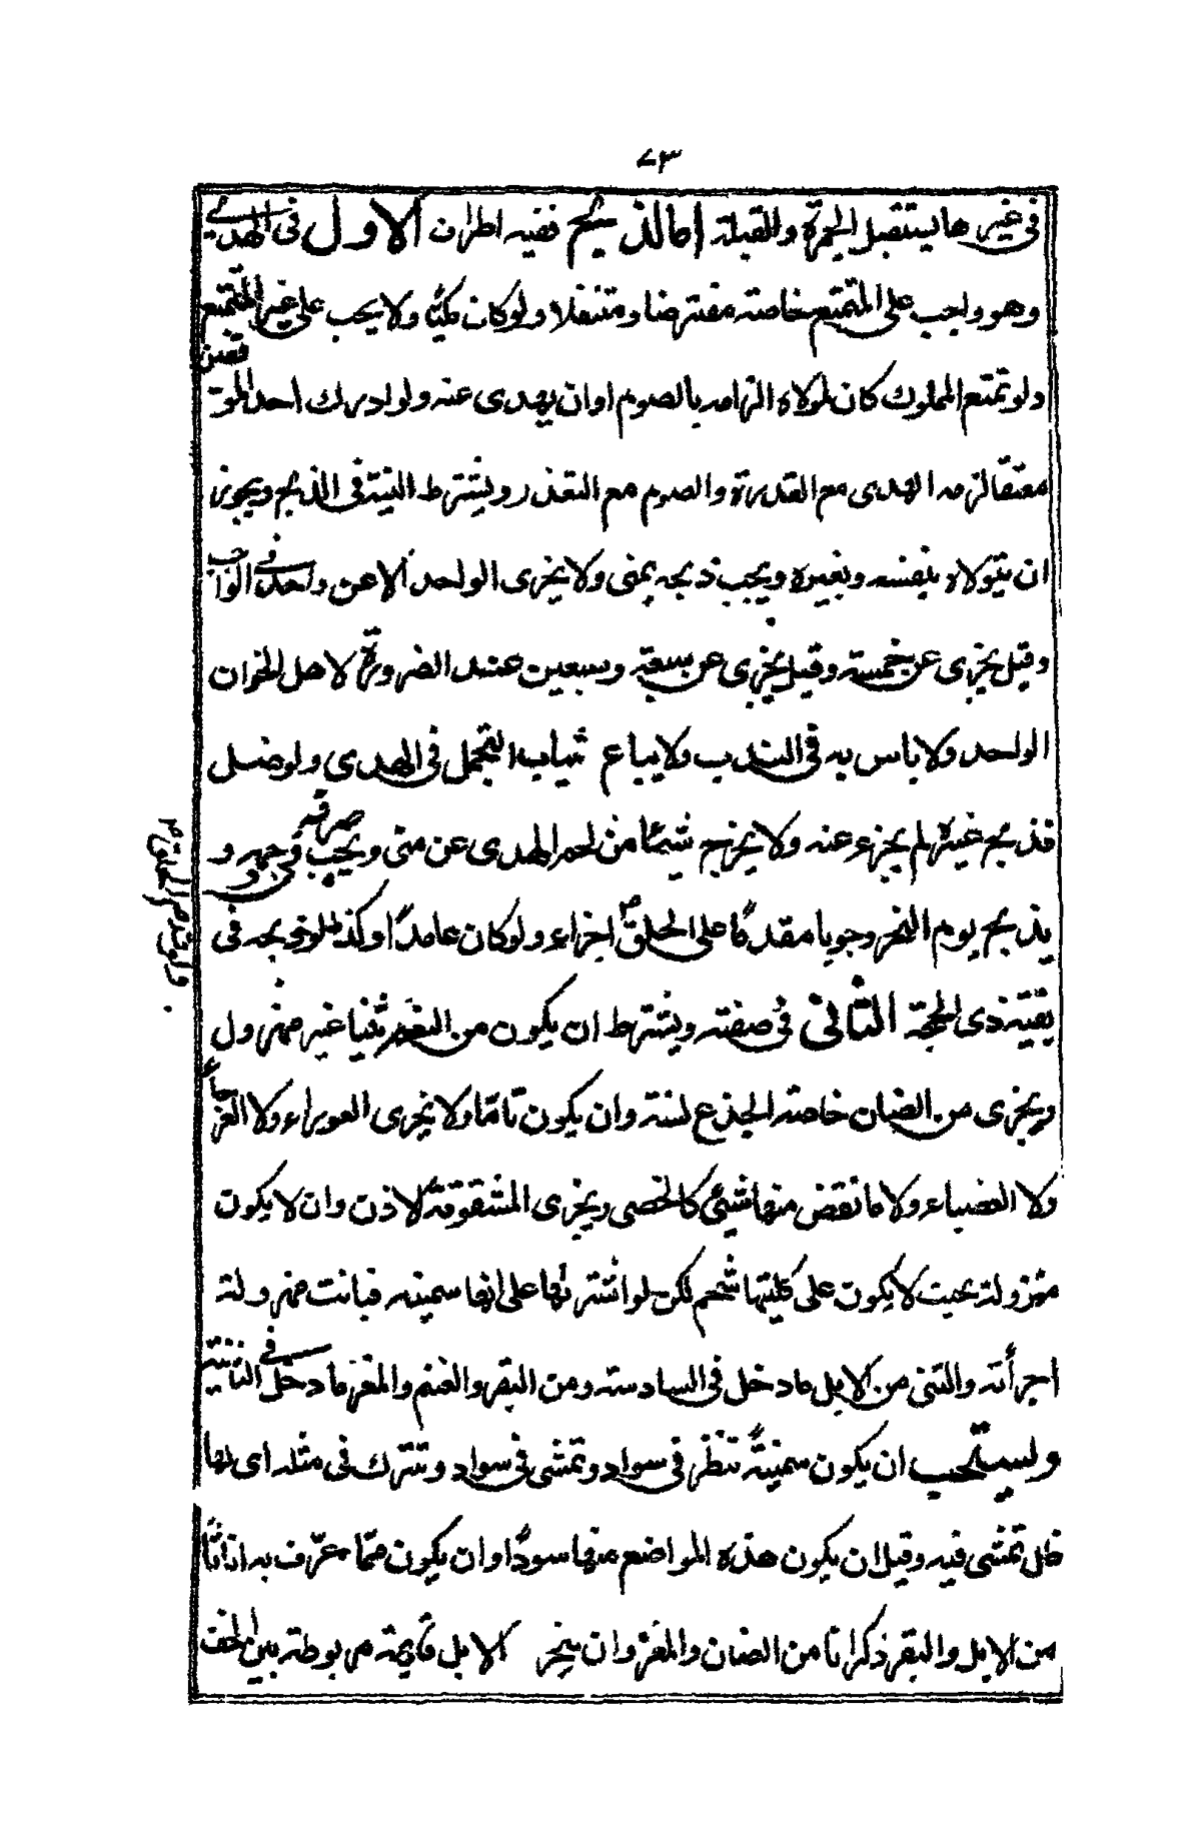 ٧٣
فى غيرها يستقبل الجمرة والقبلة اما الذبح ففيه اطراف الاول فى الهدى
وهو واجب على المتمتع خاصته مفترضا ومتنفلا ولو كان مكيّا ولا يجب على غير المتمتع
ولو تمتع المملوك كان لمولاه الزامه بالصوم او ان يهدى عنه ولو ادرك احد الموقفين
معتقًا لزمه الهدى مع القدرة والصوم مع التعذر ويشترط النية فى الذبح ويجوز
ان يتولاه بنفسه وبغيره ويجب ذبحه بمنى ولا يجزى الواحد الا عن واحد فى الواجب
وقيل يجزى عن خمسته وقيل يجزى عن سبعته وسبعين عند الضرورة لاهل الخوان
الواحد ولا باس به فى الندب ولا يباع ثياب التجمل فى الهدى ولو ضل
فذبح غيره لم يجزء عنه ولا يخرج شيئا من لحم الهدى عن منى ويجب صرفه فى وجهه و
يذبح يوم النحر وجوبا مقدمًا على الحلق اجزاء ولو كان عامدًا وكذا لو ذبحه فى
ولو قدم الحلق
بقيته ذى الحجة الثانى فى صفته ويشترط ان يكون من النعم ثنيا غير مهزول
ويجزى من الضان خاصته الجذع لسنة وان يكون تامّا ولا يجزى العوراء ولا العرجاء
ولا العضباء ولا ما نقص منها شيئ كالخصى ويجزى المشقوقة الاذن وان لا يكون
مهزولة بحيث لا يكون على كليتها شحم لكن لو اشترتها على انها سمينه فبانت مهزولة
اجزأته والثنى من الابل ما دخل فى السادسته ومن البقر والغنم والمعز ما دخل فى الثانية
ويستحب ان يكون سمينةً تنظر فى سواد وتمشى فى سواد وتترك فى مثله اى لها
ظل تمشى فيه وقيل ان يكون هذه المواضع منها سودًا وان يكون ممّا عرّف به اناثًا
من الابل والبقر ذكرانا من الضان والمعز وان ينحر الابل قايمة مربوطة بين الخف